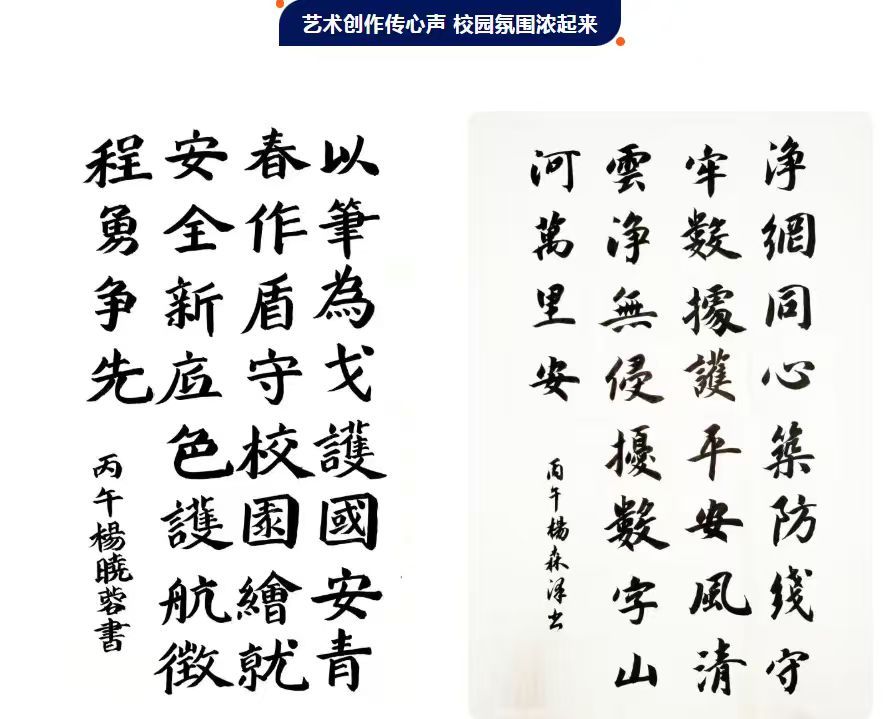 艺术创作传心声 校园氛围浓起来
以筆為戈護國安青
春作盾守校園繪就
安全新底色護航徵
程勇争先
丙午楊曉蓉書
浄網同心築防綫守
牢數據護平安風清
雲浄無侵擾數字山
河萬里安
丙午楊森泽书